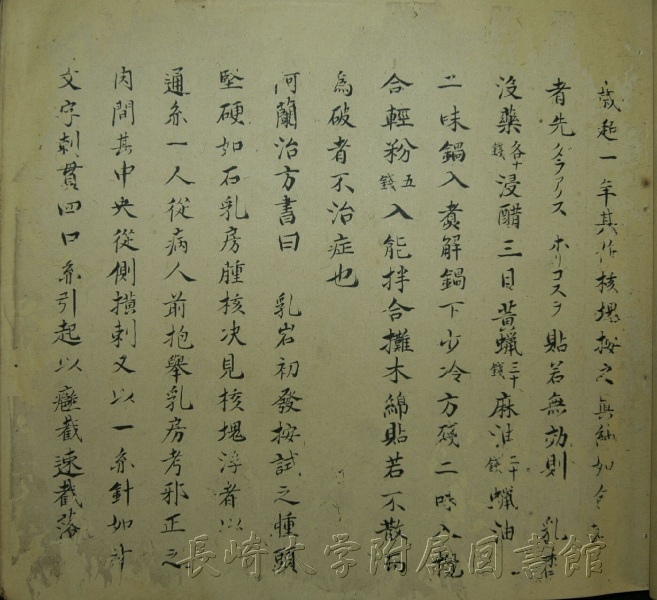 歳起一年其作核塊按之無結如
者先 ホリコスラ貼若無効則 乳香
没藥各十錢浸醋三日黄蠟三十錢麻油二十錢蠟油一
二味鍋入煮解鍋下少冷方殘二味入攪
合輕粉五錢入能拌合攤木綿貼若不散
為破者不治症也
阿蘭治方書曰 乳岩初發按試之腫頭
堅硬如石乳房腫核决見核塊浮者以
通糸一人從病人前抱舉乳房考邪正之
肉間其中央從側横刺又以一糸針如
文字刺貫四口糸引起以 截速截落
長崎大学附属図書館